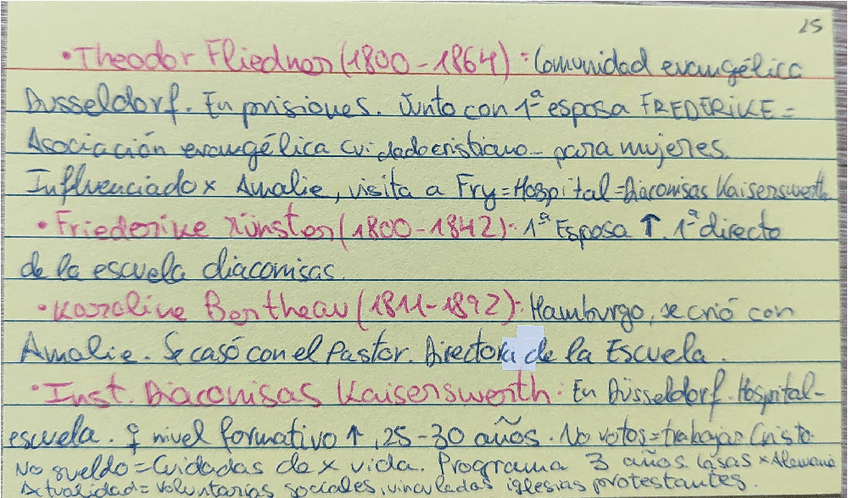 25
• Theodor Fliedner (1800-1864): Comunidad evangélica
Dusseldorf. En prisiones. Junto con 1ª esposa FREDERIKE =
Asociación evangélica cuidado cristiano para mujeres.
Influenciado x Amalie, visita a Fry = Hospital = Diaconisas Kaiserswerth
• Friederike Münster (1800-1842): 1ª Esposa ↑. 1ª directo
de la escuela diaconisas.
• Karoline Bertheau (1811-1892): Hamburgo, se crió con
Amalie. Se casó con el Pastor. Directora de la Escuela.
• Inst. Diaconisas Kaiserswerth: En Düsseldorf. Hospital-
escuela. ♀ nivel formativo ↑, 25-30 años. No votos = trabajar Cristo
No sueldo = Cuidadas de x vida. Programa 3 años. Casas x Alemania
Actualidad = voluntarias sociales, vinculadas iglesias protestantes.